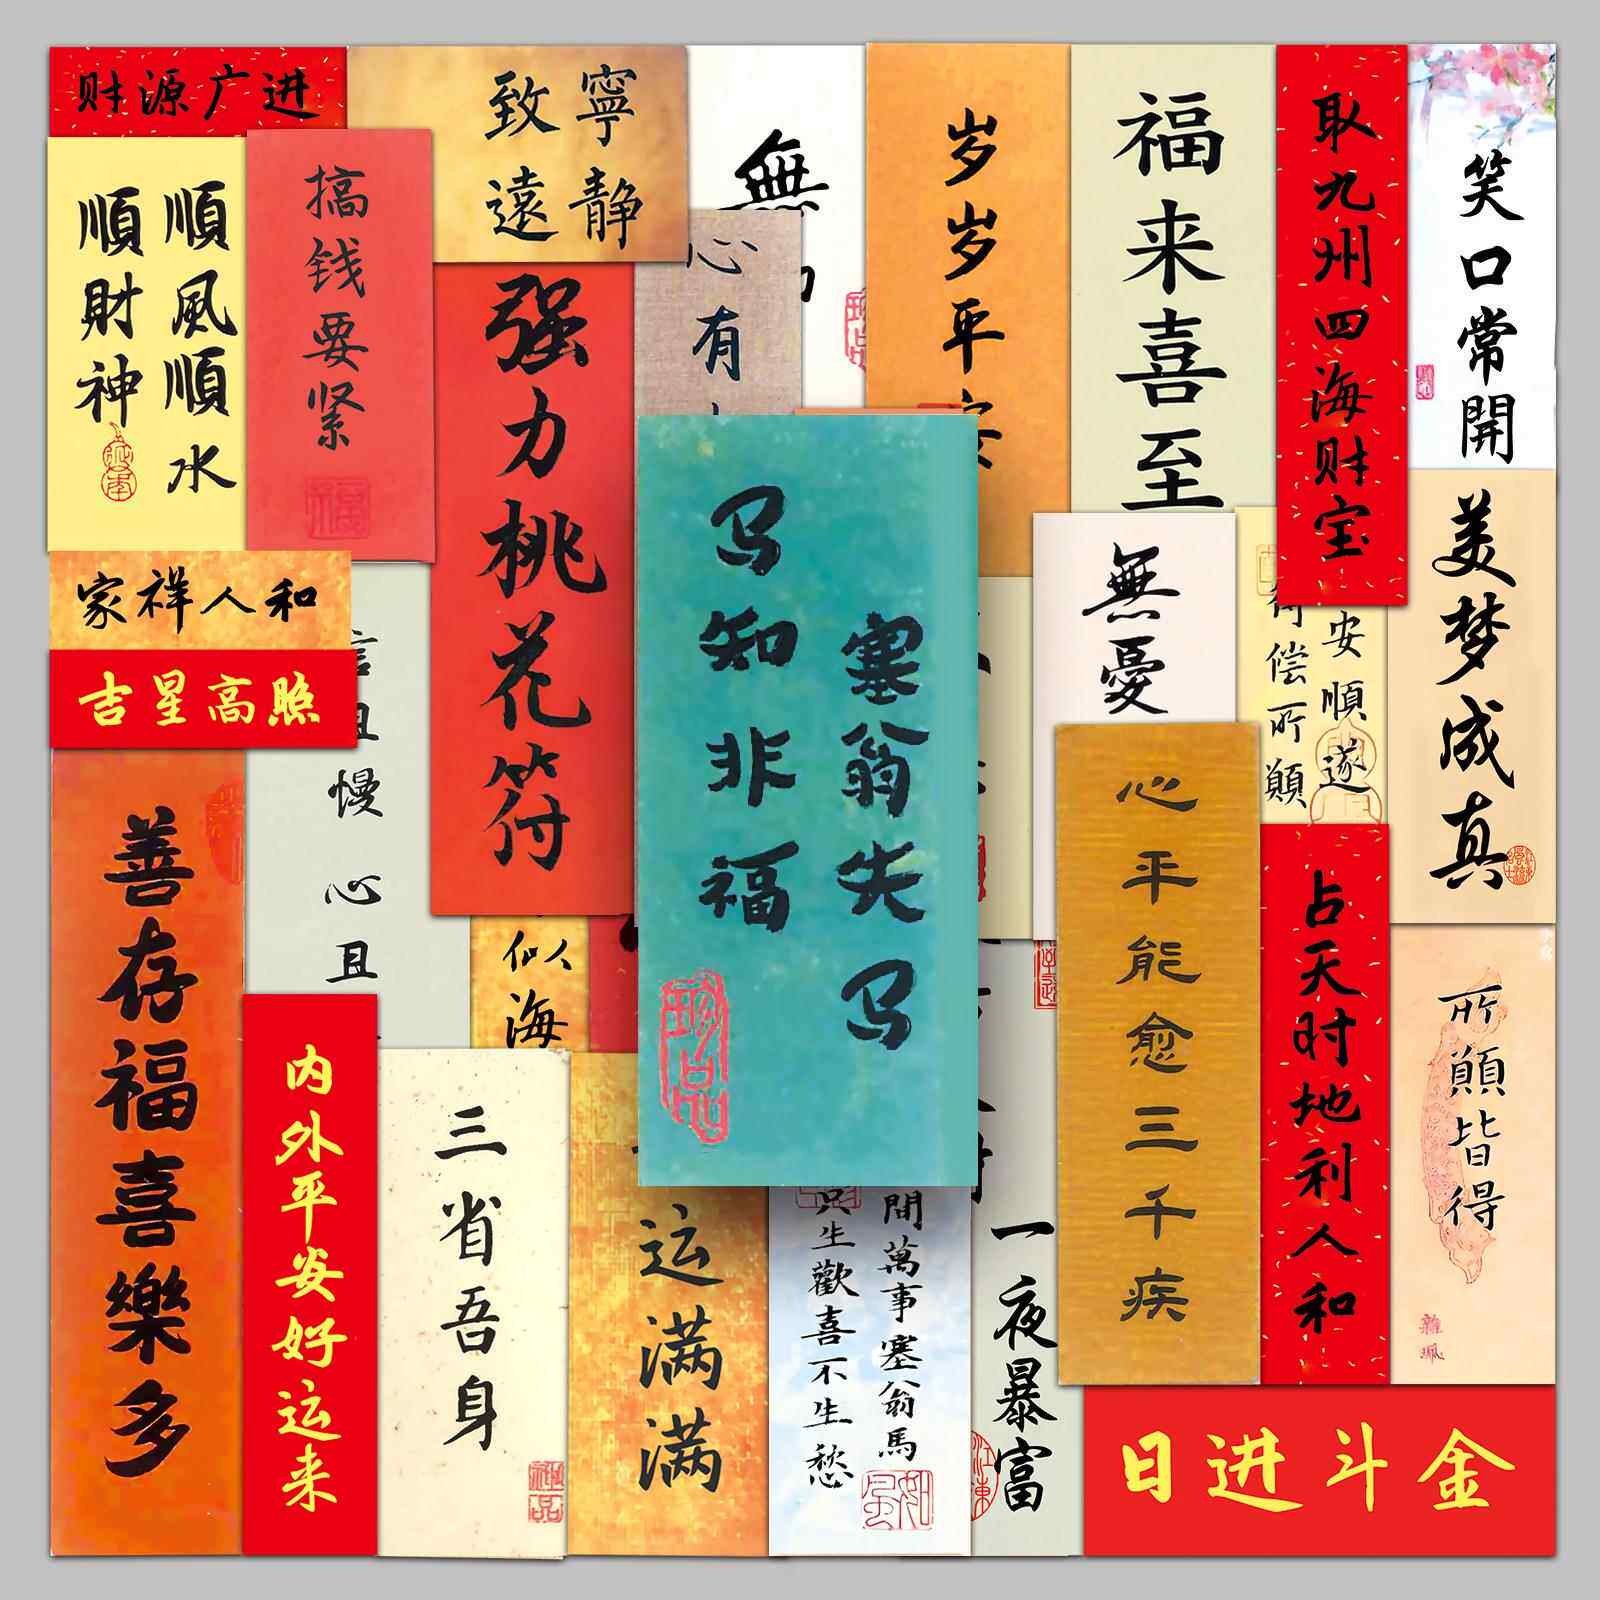 财源广进
寧静
致遠
無
岁岁平
福来喜至
取九州四海财宝
笑口常開
順風順水
順財神
搞钱要紧
心有
强力桃花符
塞翁失马
马知非福
珍品
無憂
安順遂
偿所願
美梦成真
家祥人和
吉星高照
慢心且
善存福喜樂多
似海
人
心平能愈三千疾
占天时地利人和
所願皆得
内外平安好运来
三省吾身
运满满
間萬事塞翁馬
只生歡喜不生愁
一夜暴富
日进斗金